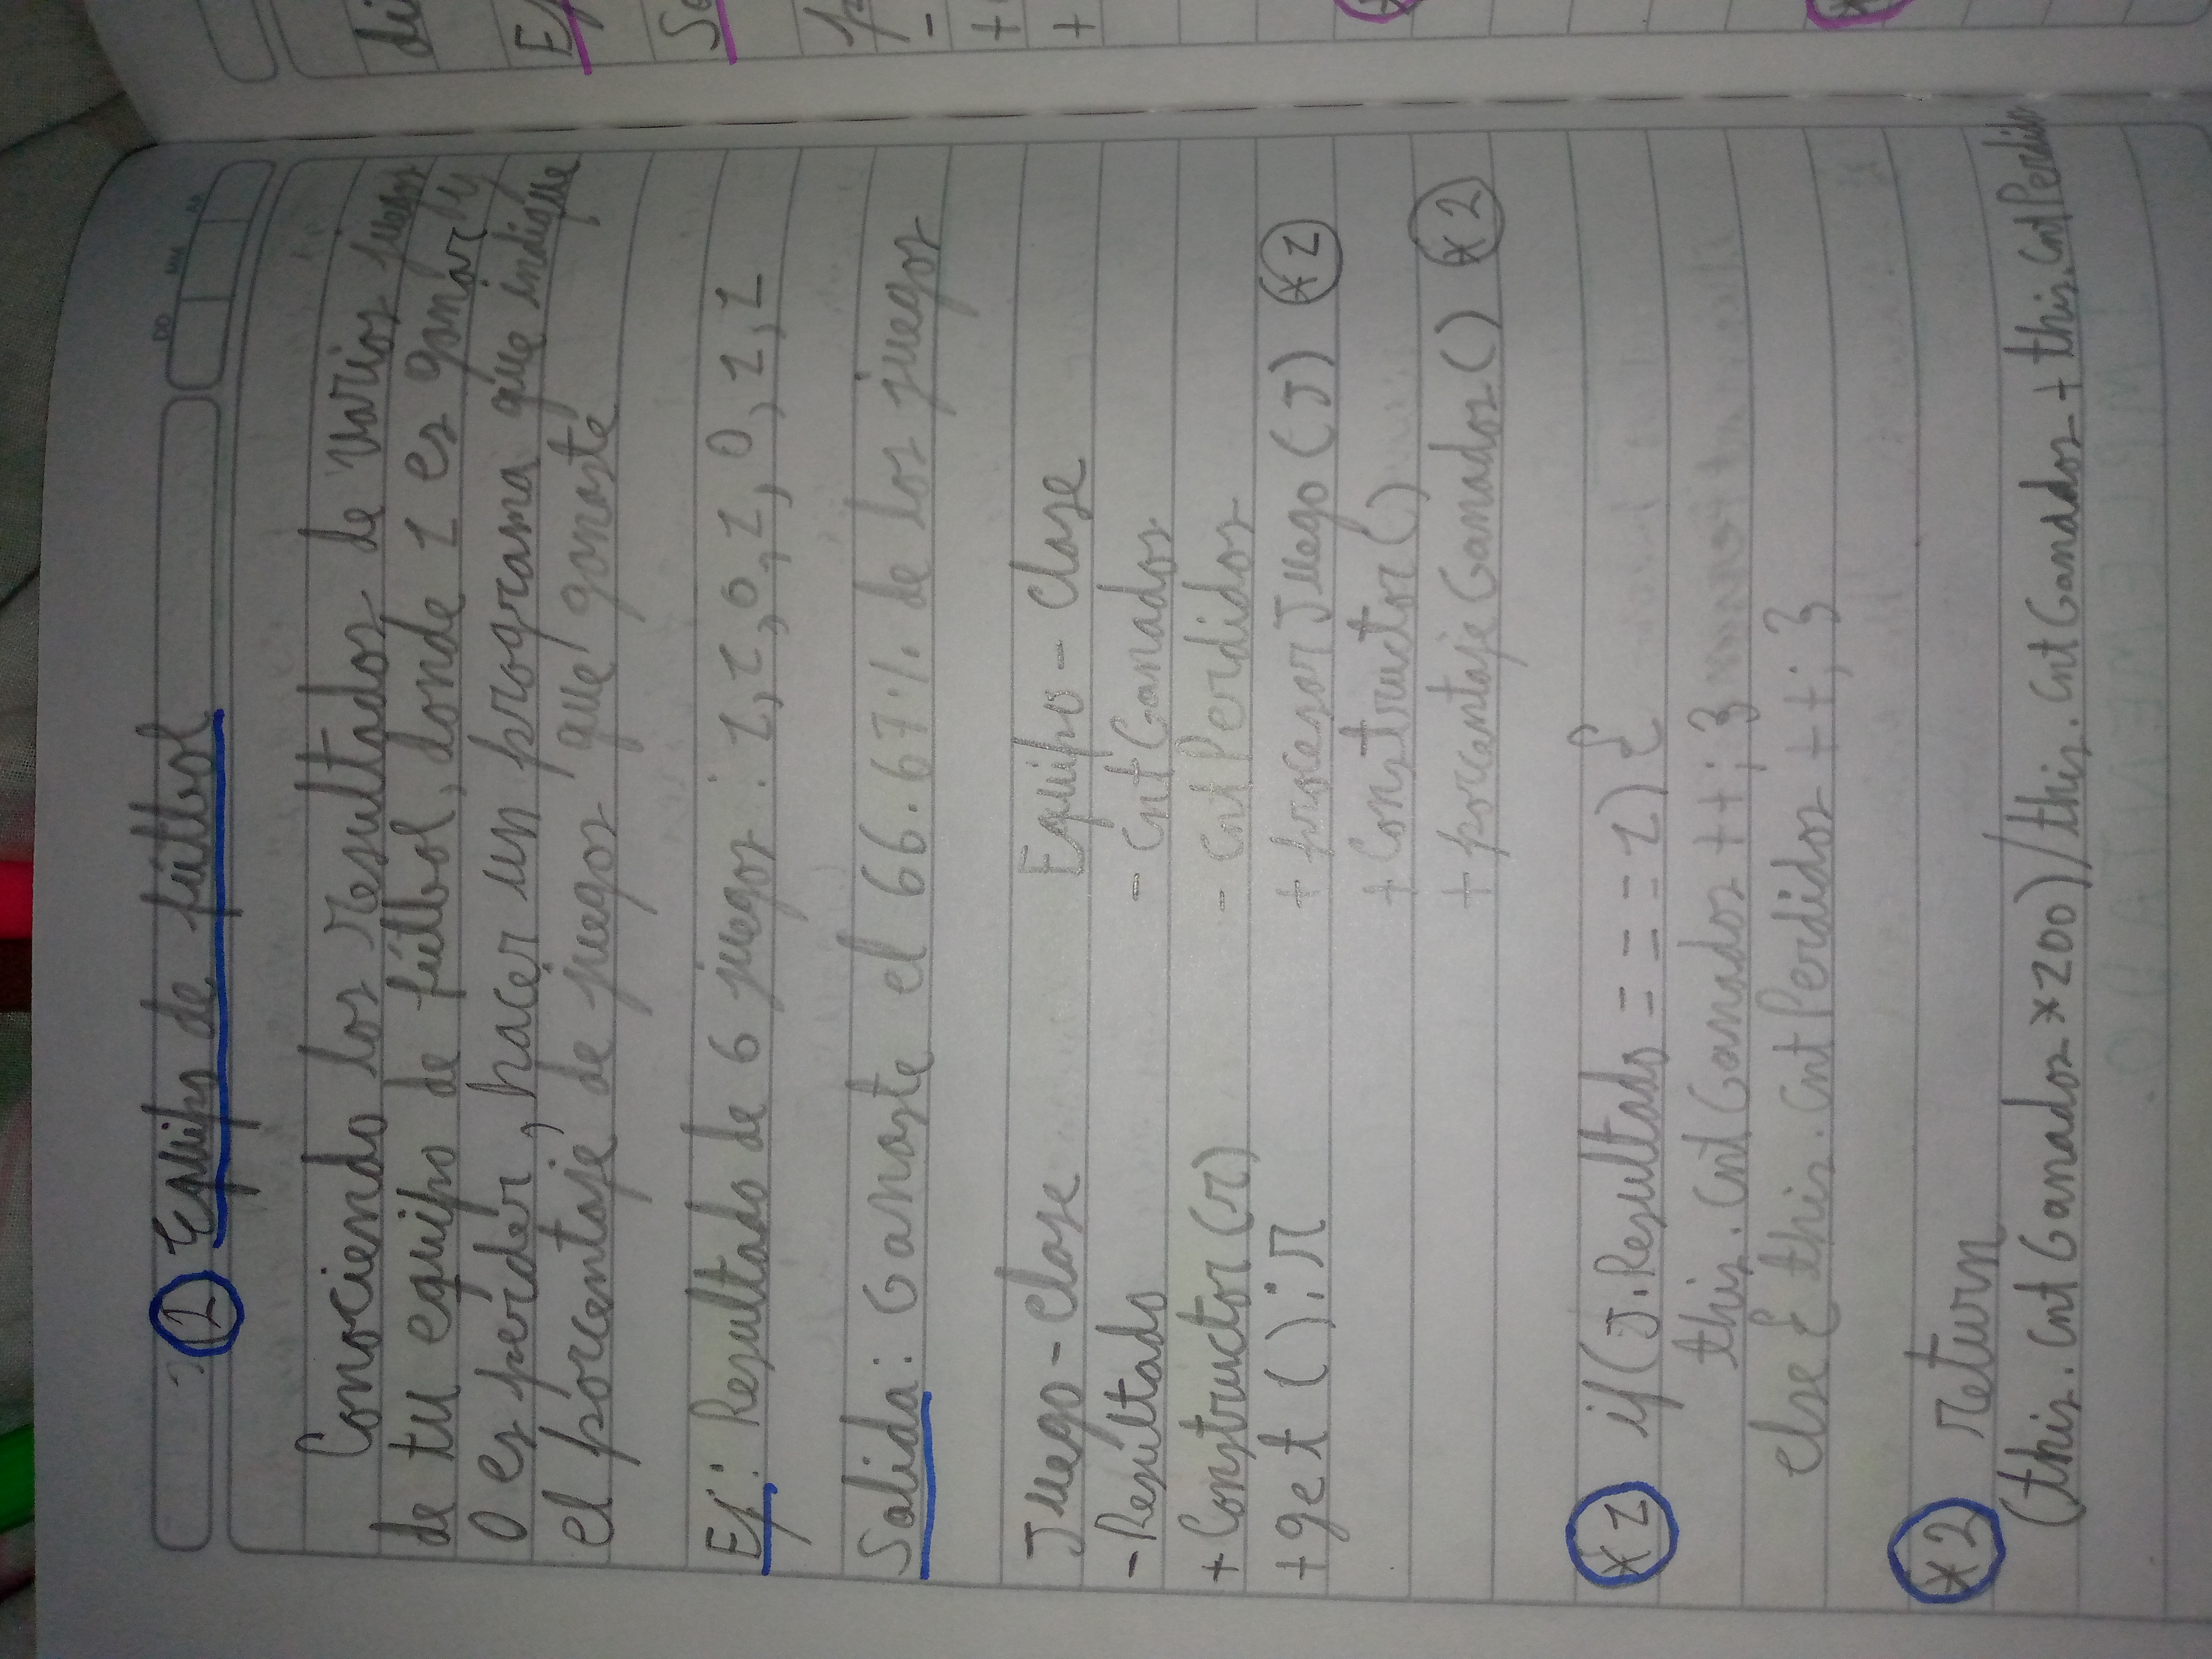 2 Equipo de fútbol
Conociendo los resultados de varios juegos
de tu equipo de fútbol, donde 1 es ganar y
0 es perder, hacer un programa que indique
el porcentaje de juegos que ganaste
Ej: Resultado de 6 juegos: 1, 1, 0, 1, 0, 1, 1
Salida: Ganaste el 66.67% de los juegos
Juego - clase Equipo - Clase
- Resultado - cntGanados
+ Constructor (r) - cntPerdidos
+ get () : r + procesarJuego (J) *1
+ Constructor ()
+ porcentajeGanados () *2
*1 if (J.Resultado === 1) {
this.cntGanados ++; }
else { this.cntPerdidos ++; }
*2 return
(this.cntGanados *100) / this.cntGanados + this.cntPerdidos